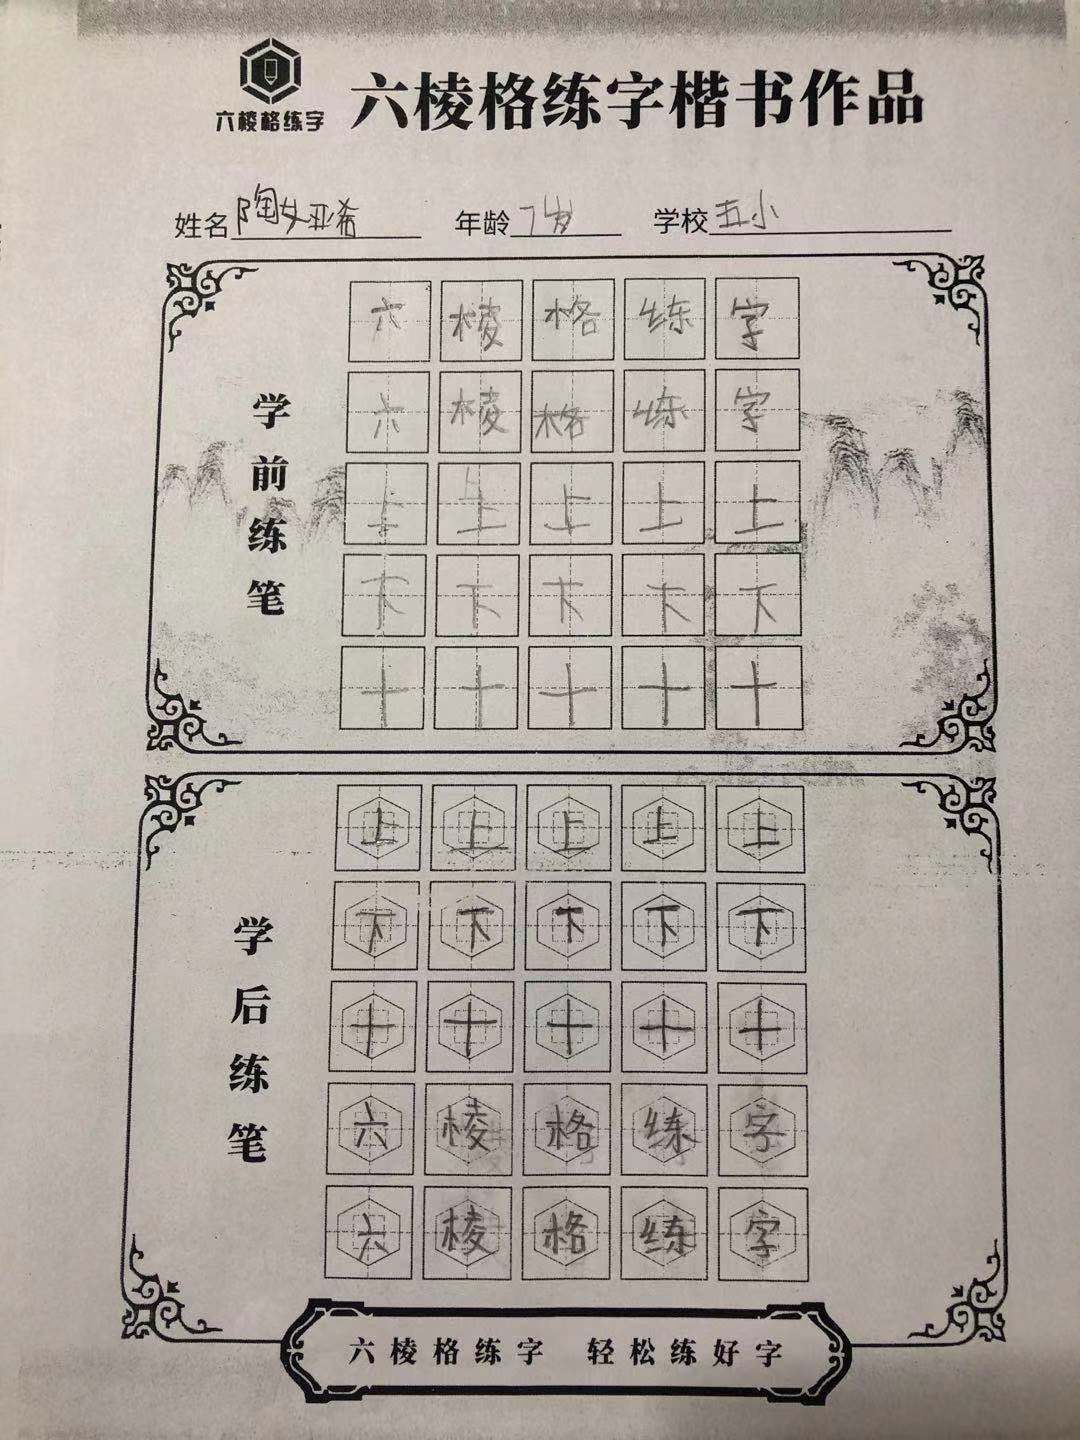 六棱格练字
六棱格练字楷书作品
姓名 陶女亚希 年龄 7岁 学校 五小
学前练笔
六 棱 格 练 字
六 棱 格 练 字
上 上 上 上 上
下 下 下 下 下
十 十 十 十 十
学后练笔
上 上 上 上 上
下 下 下 下 下
十 十 十 十 十
六 棱 格 练 字
六 棱 格 练 字
六棱格练字 轻松练好字